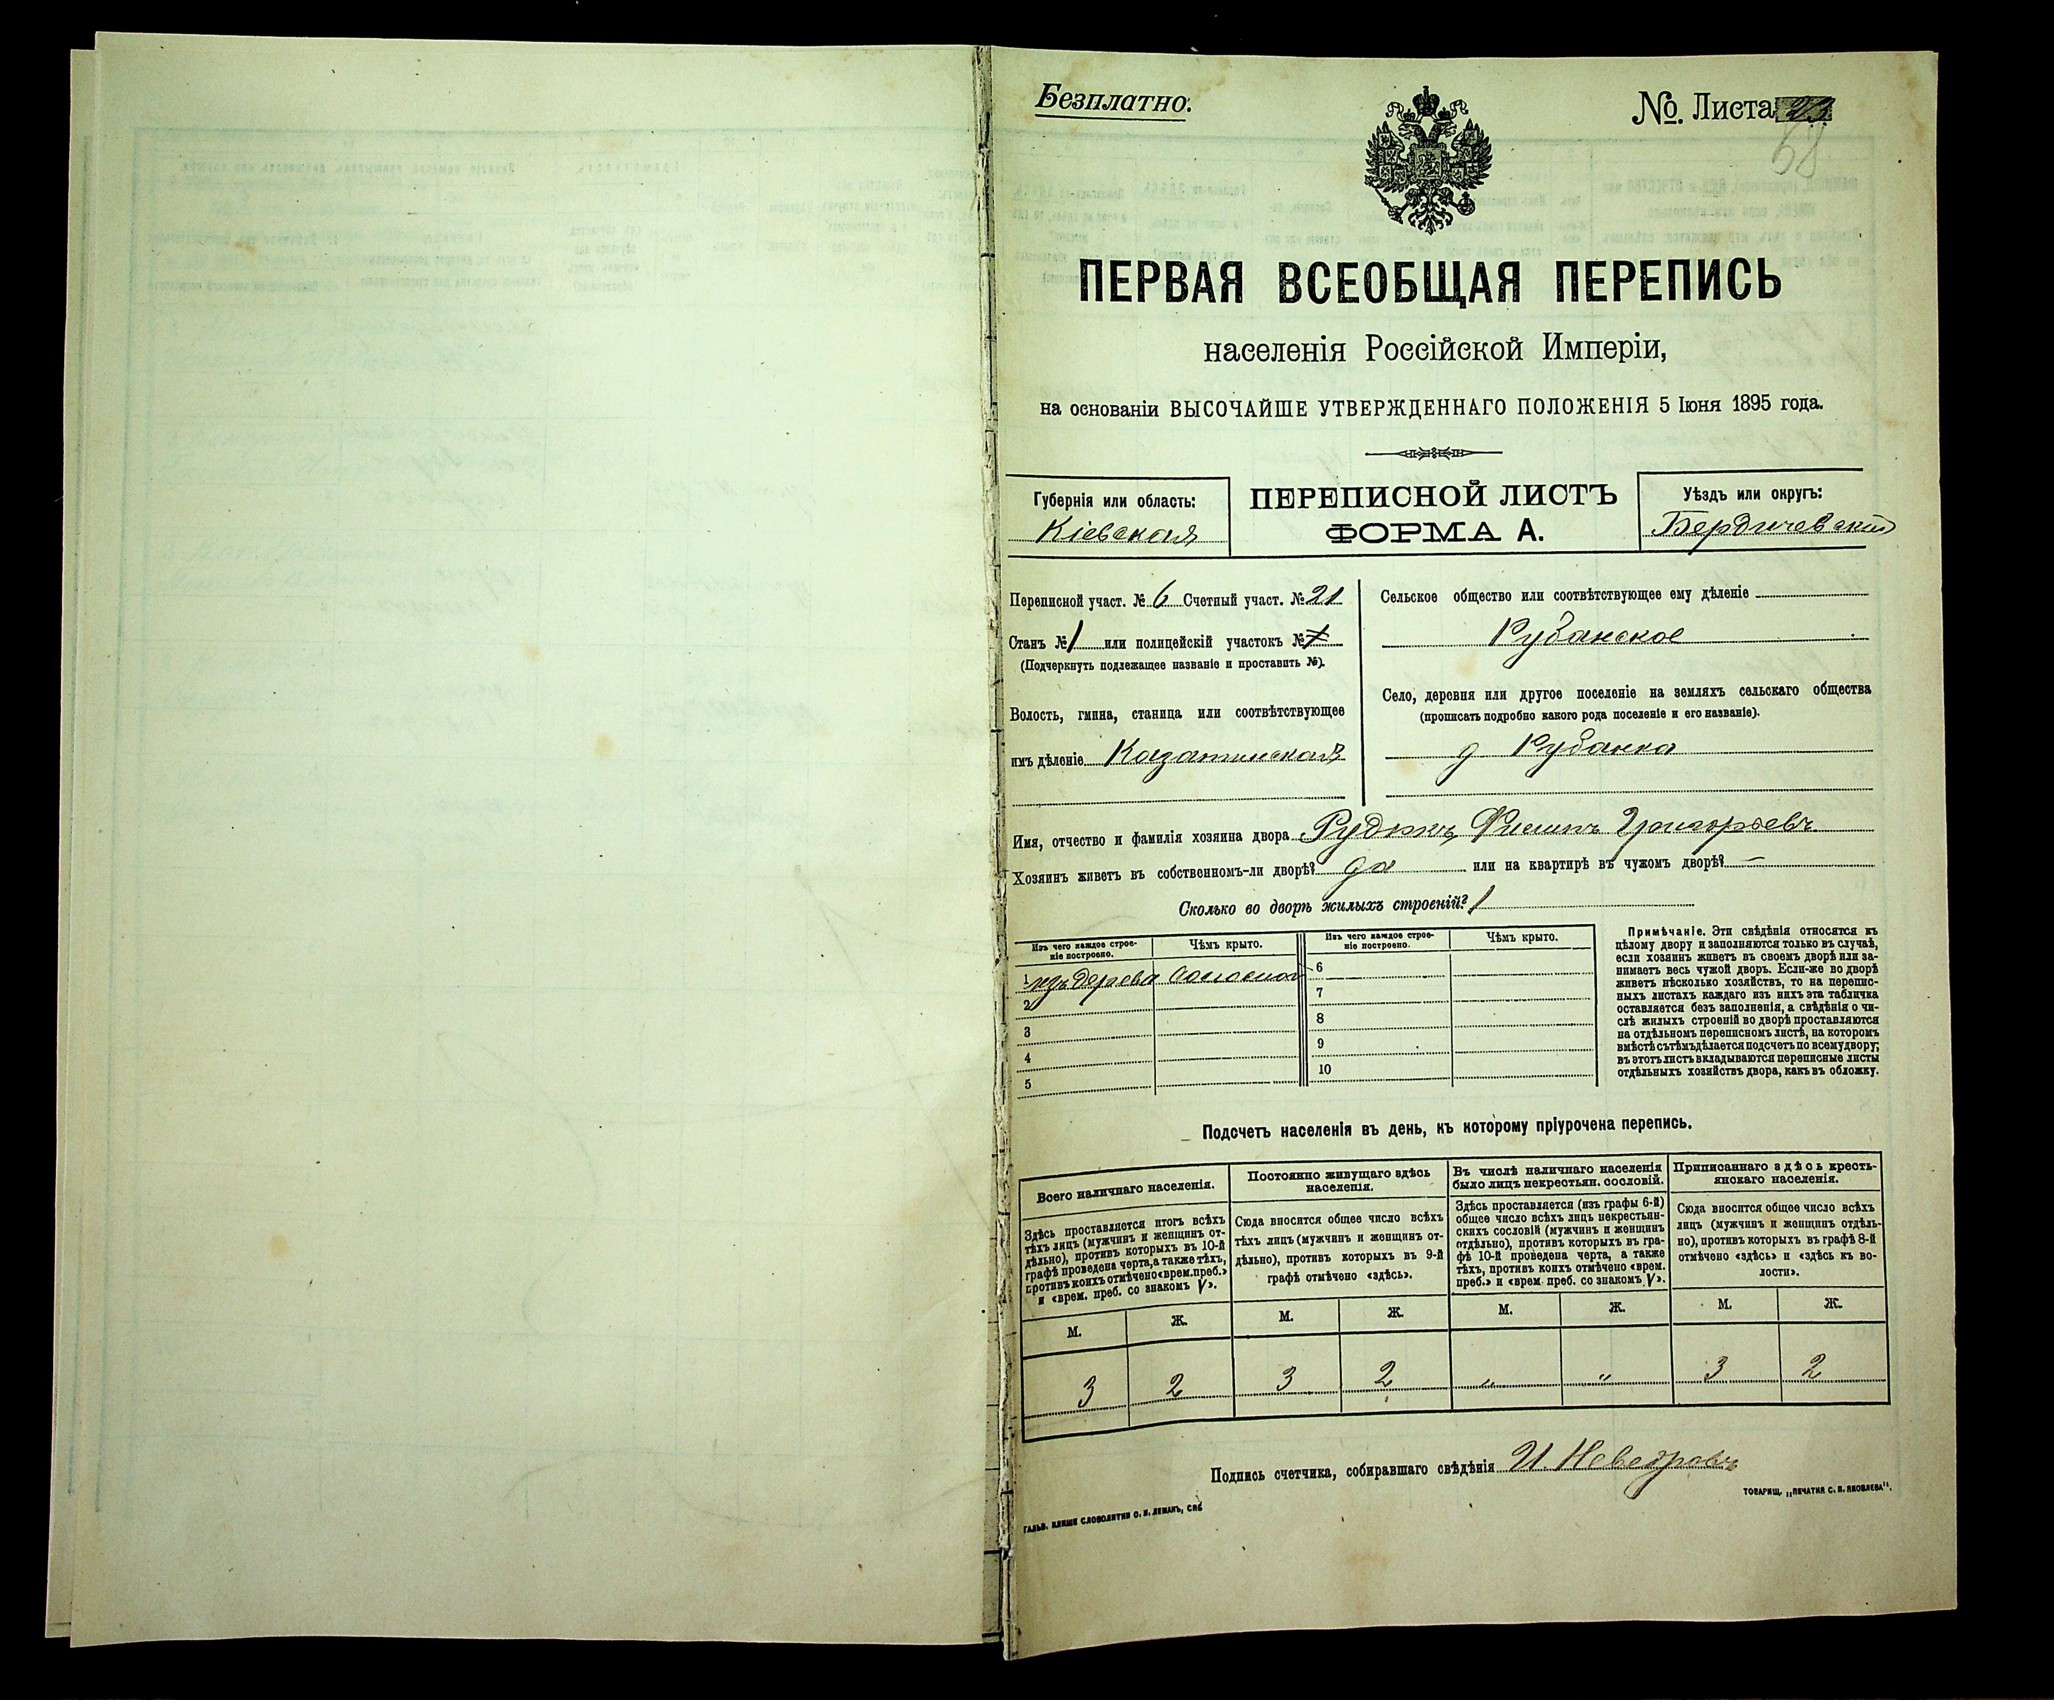 Безплатно.
№. Листа 23
58
ПЕРВАЯ ВСЕОБЩАЯ ПЕРЕПИСЬ
населенія Россійской Имперіи,
на основаніи ВЫСОЧАЙШЕ УТВЕРЖДЕННАГО ПОЛОЖЕНІЯ 5 Іюня 1895 года.
Губернія или область:
Кіевская
ПЕРЕПИСНОЙ ЛИСТЪ
ФОРМА А.
Уѣздъ или округъ:
Бердичевскій
Переписной участ. № 6 Счетный участ. № 21
Станъ № 1 или полицейскій участокъ №
(Подчеркнуть подлежащее названіе и проставить №).
Волость, гмина, станица или соотвѣтствующее
имъ дѣленіе Казатинская
Сельское общество или соотвѣтствующее ему дѣленіе
Рубанское
Село, деревня или другое поселеніе на земляхъ сельскаго общества
(прописать подробно какого рода поселеніе и его названіе).
д Рубанка
Имя, отчество и фамилія хозяина двора Рудюкъ Филипъ Григорьевъ
Хозяинъ живетъ въ собственномъ-ли дворѣ? да или на квартирѣ въ чужомъ дворѣ? —
Сколько во дворѣ жилыхъ строеній? 1
Изъ чего каждое строе-
ніе построено.
Чѣмъ крыто.
Изъ чего каждое строе-
ніе построено.
Чѣмъ крыто.
1 изъ дерева соломой
2
3
4
5
6
7
8
9
10
Примѣчаніе. Эти свѣдѣнія относятся къ
цѣлому двору и заполняются только въ случаѣ,
если хозяинъ живетъ въ своемъ дворѣ или за-
нимаетъ весь чужой дворъ. Если-же во дворѣ
живетъ нѣсколько хозяйствъ, то на перепис-
ныхъ листахъ каждаго изъ нихъ эта табличка
оставляется безъ заполненія, а свѣдѣнія о чи-
слѣ жилыхъ строеній во дворѣ проставляются
на отдѣльномъ переписномъ листѣ, на которомъ
вмѣстѣ съ тѣмъ дѣлается подсчетъ по всему двору;
въ этотъ листъ вкладываются переписные листы
отдѣльныхъ хозяйствъ двора, какъ въ обложку.
Подсчетъ населенія въ день, къ которому пріурочена перепись.
Всего наличнаго населенія.
Здѣсь проставляется итогъ всѣхъ
тѣхъ лицъ (мужчинъ и женщинъ от-
дѣльно), противъ которыхъ въ 10-й
графѣ проведена черта, а также тѣхъ,
противъ коихъ отмѣчено «врем. преб.»
и «врем. преб. со знакомъ V».
Постоянно живущаго здѣсь
населенія.
Сюда вносится общее число всѣхъ
тѣхъ лицъ (мужчинъ и женщинъ от-
дѣльно), противъ которыхъ въ 9-й
графѣ отмѣчено «здѣсь».
Въ числѣ наличнаго населенія
было лицъ некрестьян. сословій.
Здѣсь проставляется (изъ графы 6-й)
общее число всѣхъ лицъ некрестьян-
скихъ сословій (мужчинъ и женщинъ
отдѣльно), противъ которыхъ въ гра-
фѣ 10-й проведена черта, а также
тѣхъ, противъ коихъ отмѣчено «врем.
преб.» и «врем. преб. со знакомъ V».
Приписаннаго здѣсь кресть-
янскаго населенія.
Сюда вносится общее число всѣхъ
лицъ (мужчинъ и женщинъ отдѣль-
но), противъ которыхъ въ графѣ 8-й
отмѣчено «здѣсь» и «здѣсь къ во-
лости».
М. Ж. М. Ж. М. Ж. М. Ж.
3 2 3 2 " " 3 2
Подпись счетчика, собиравшаго свѣдѣнія И. Неведровъ
ГАЛЬВ. КЛИШЕ СЛОВОЛИТНИ О. И. ЛЕМАНЪ, СПБ
ТОВАРИЩ. „ПЕЧАТНЯ С. П. ЯКОВЛЕВА".